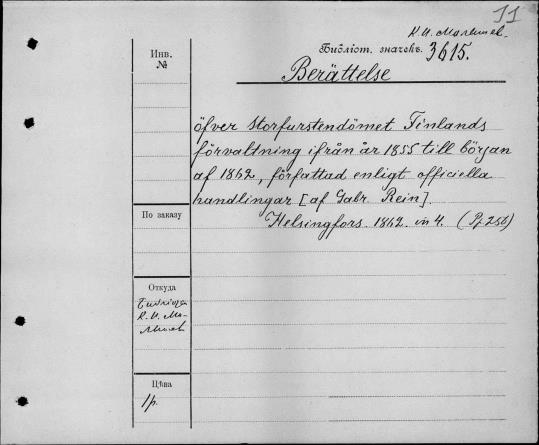 11
К. И. Малышев.
Библіот. значекъ. 3615.
Инв.
№
Berättelse
öfver Storfurstendömet Finlands
förvaltning ifrån år 1855 till början
af 1862, författad enligt officiella
handlingar [af Gabr Rein].
Helsingfors. 1862. in 4.
По заказу
Откуда
К. И. Ма-
лышев
Цѣна
1 р.